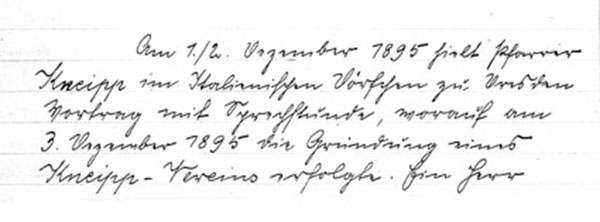 Am 1./2. Dezember 1895 hielt Pfarrer
Kneipp im Italienischen Dörfchen zu Dresden
Vortrag mit Sprechstunde, worauf am
3. Dezember 1895 die Gründung eines
Kneipp-Vereins erfolgte. Ein Herr